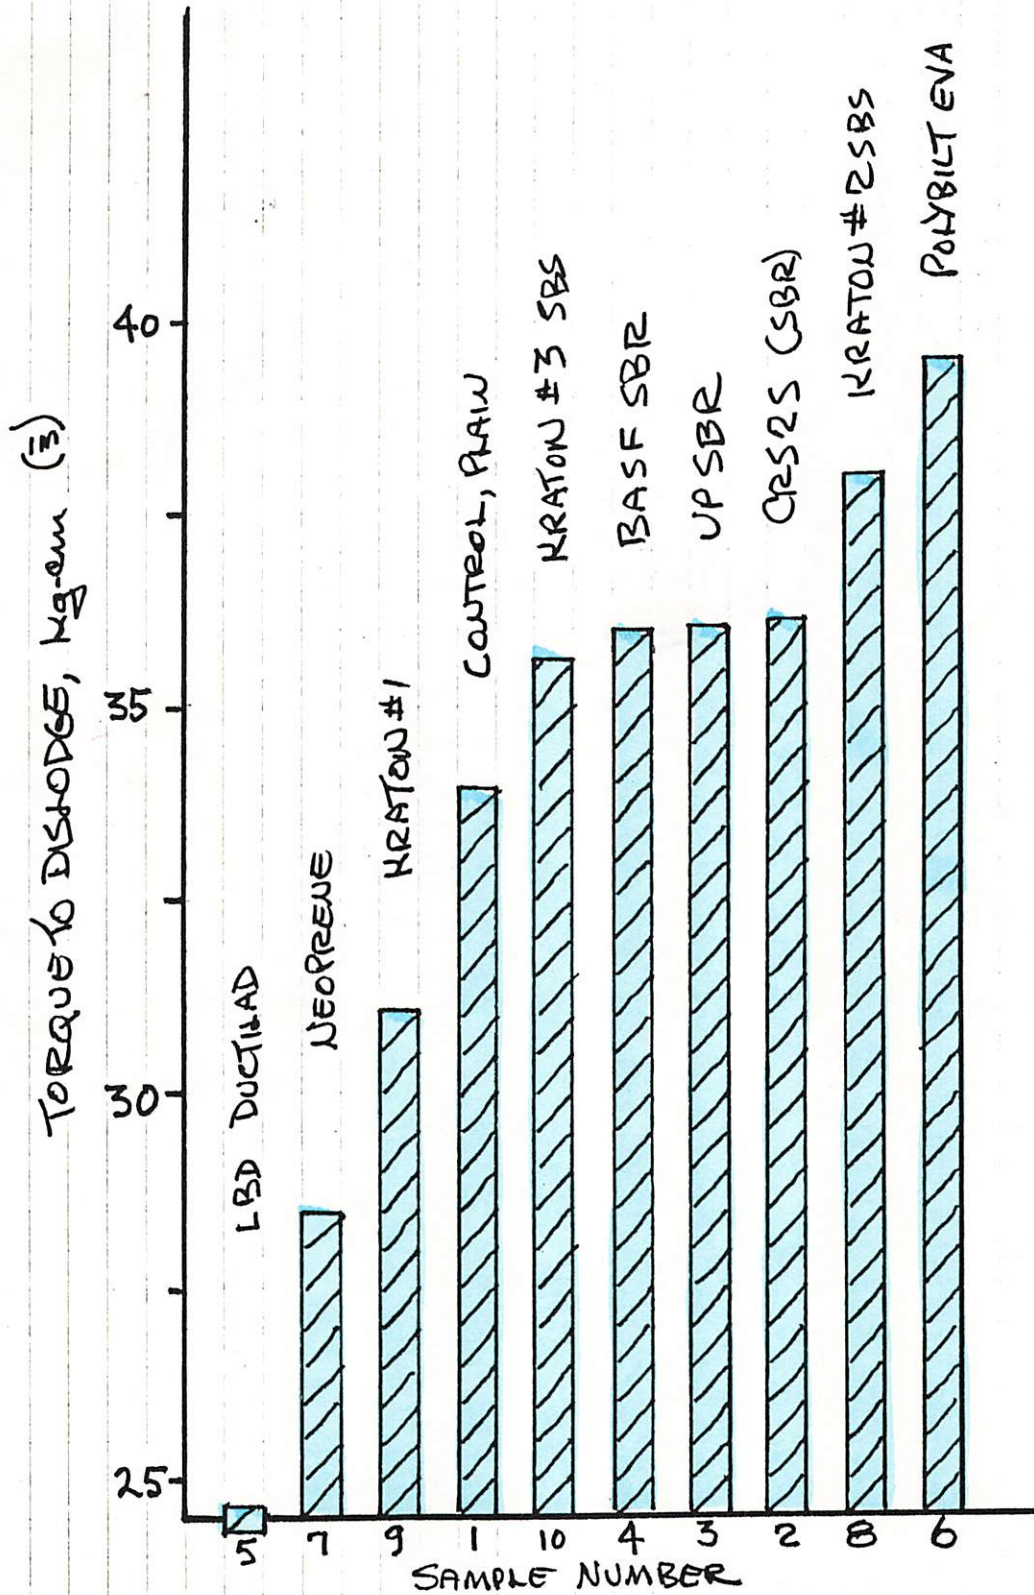 TORQUE TO DISLODGE, Kg-cm (m̄)
40
35
30
25
LBD DUCTILAD
NEOPRENE
KRATON #1
CONTROL, PLAIN
KRATON #3 SBS
BASF SBR
UP SBR
CRS2S (SBR)
KRATON #2 SBS
POLYBILT EVA
5 7 9 1 10 4 3 2 8 6
SAMPLE NUMBER